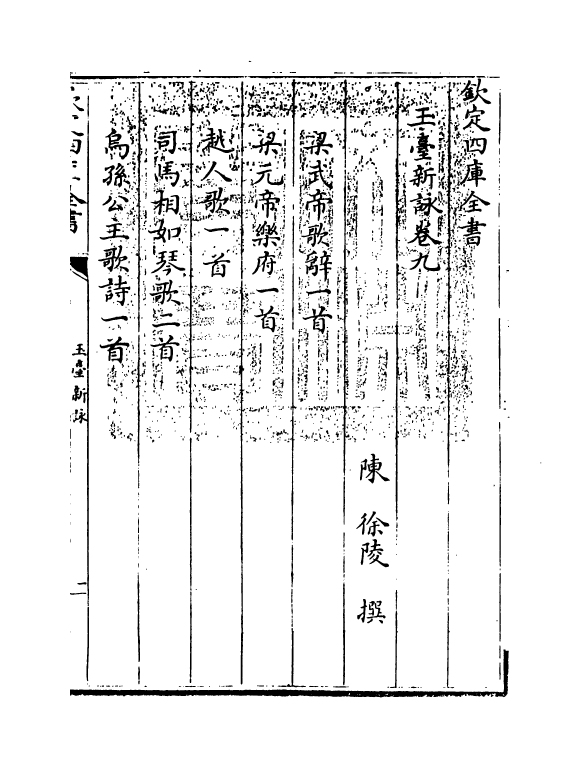 欽定四庫全書
玉臺新詠卷九
陳 徐陵 撰
梁武帝歌辭一首
梁元帝樂府一首
越人歌一首
司馬相如琴歌二首
烏孫公主歌詩一首
玉臺新詠